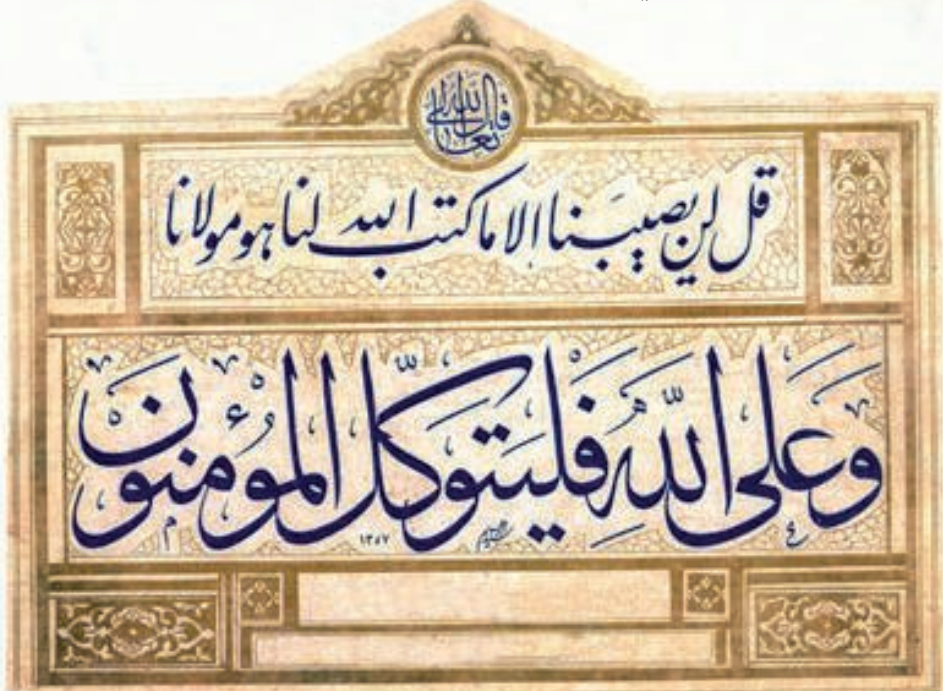 قال الله تعالی
قل لن یصیبنا الا ما کتب الله لنا هو مولانا
وَعَلَى اللّٰهِ فَلْيَتَوَكَّلِ الْمُؤْمِنُونَ
١٣٥٧